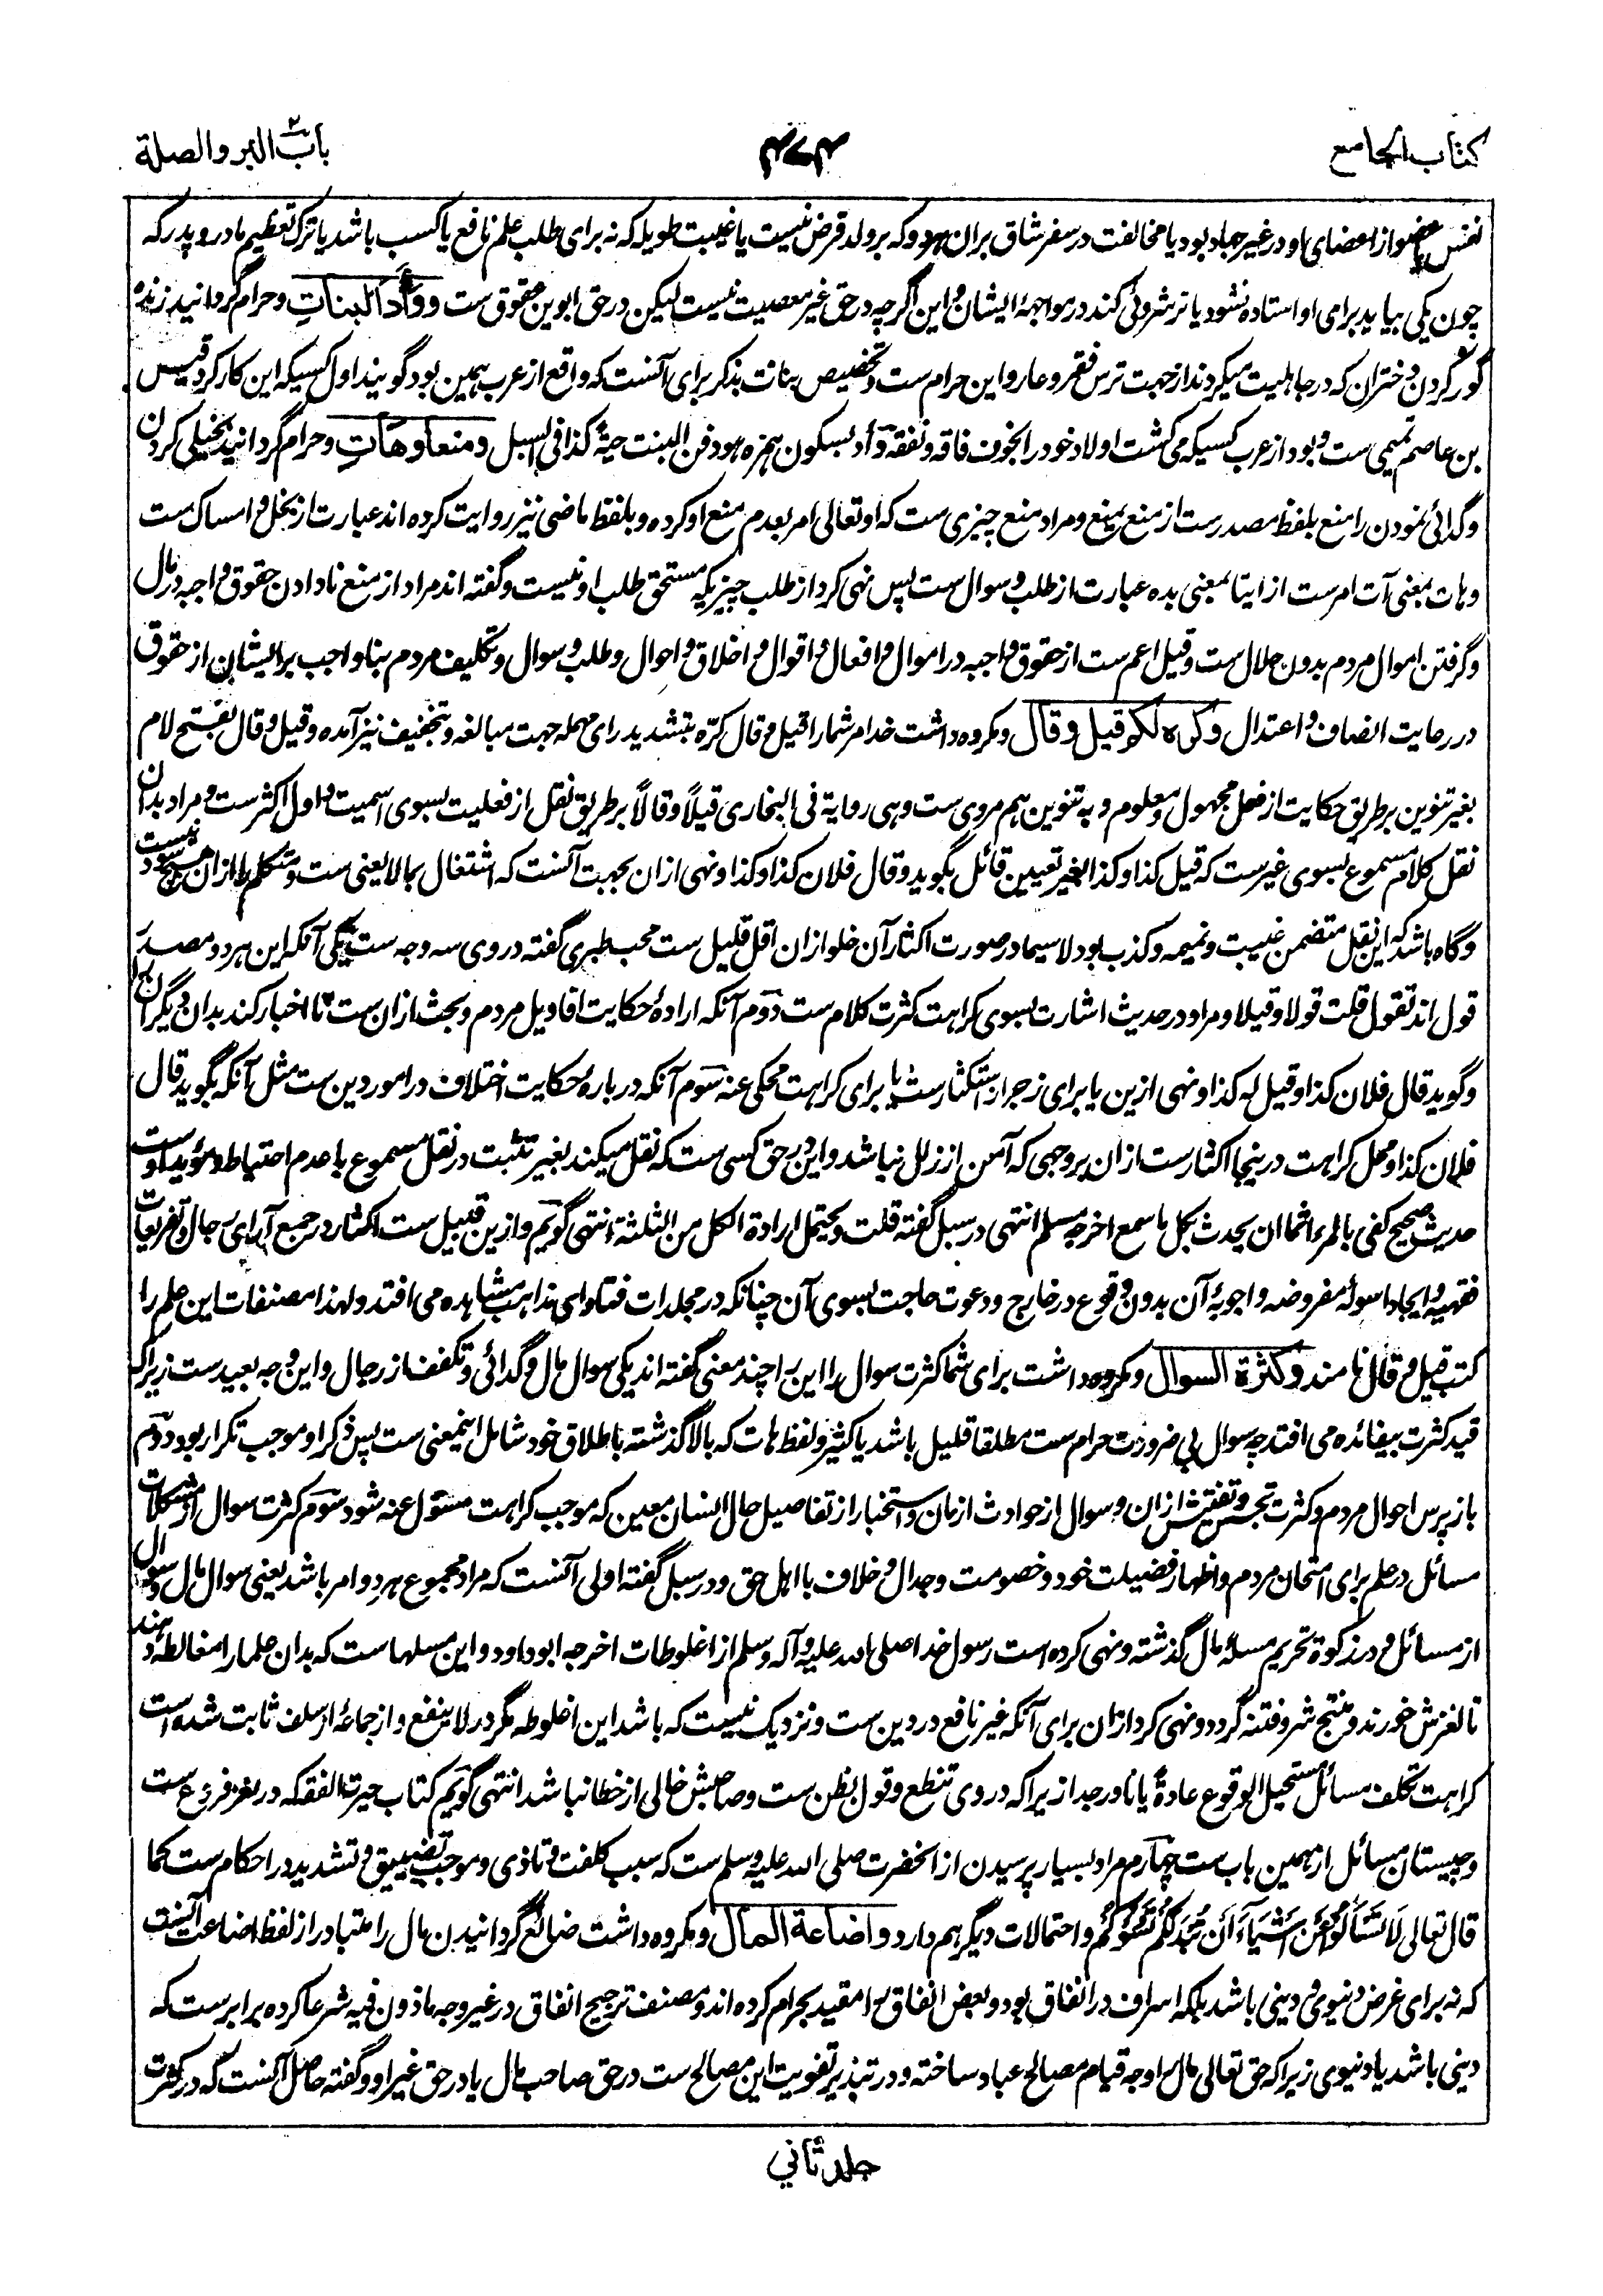 کتاب الجامع
باب البر والصلة
نفس یا عضو از اعضای او در غیر جهاد بود یا مخالفت در سفر شاق بران هر دو که بر ولد فرض نیست یا غیبت طویله که نه برای طلب علم نافع یا کسب باشد یا ترک تعظیم مادر و پدر که
چون یکی بیاید برای او استاده نشود یا ترشروئی کند در مواجههٔ ایشان و این اگرچه در حق غیر معصیت نیست لیکن در حق ابوین عقوق ست ووأد البنات و حرام گردانید زنده
گور کردن دختران که در جاهلیت میکردند از جهت ترس فقر و عار و این حرام ست و تخصیص بنات بذکر برای آنست که واقع از عرب همین بود گویند اول کسیکه این کار کرد قیس
بن عاصم تمیمی ست و بود از عرب کسیکه می کشت اولاد خود را بخوف فاقه و نفقه وَأد بسکون همزه هو دفن البنت حیة کذا فی السبل ومنعا وهات و حرام گردانید بخیلی کردن
و گدائی نمودن را منع بلفظ مصدر ست از منع یمنع و مراد منع چیزی ست که او تعالی امر بعدم منع او کرده و بلفظ ماضی نیز روایت کرده اند عبارت از بخل و امساک ست
وهات بمعنی آت امرست از ایتا بمعنی بده عبارت از طلب و سوال ست پس نهی کرد از طلب چیزیکه مستحق طلب او نیست و گفته اند مراد از منع نادادن حقوق واجبه در مال
و گرفتن اموال مردم بدون حلال ست وقیل اعم ست از حقوق واجبه در اموال و افعال و اقوال و اخلاق و احوال و طلب و سوال و تکلیف مردم بناواجب بر ایشان از حقوق
در رعایت انصاف و اعتدال وکره لکم قیل وقال و مکروه داشت خدا مر شما را قیل و قال کرّه بتشدید رای مهمله جهت مبالغه و بتخفیف نیز آمده و قیل و قال بفتح لام
بغیر تنوین بر طریق حکایت از فعل مجهول و معلوم و به تنوین هم مروی ست وهی روایة فی البخاری قیلاً وقالاً بر طریق نقل از فعلیت بسوی اسمیت و اول اکثرست و مراد بدان
نقل کلام مسموع بسوی غیرست که قیل کذا وکذا بغیر تعیین قائل بگوید وقال فلان کذا وکذا و نهی ازان بجهت آنست که اشتغال بمالایعنی ست و متکلم را ازان هیچ سود نیست
و گاه باشد که این نقل متضمن غیبت و نمیمه و کذب بود لاسیما در صورت اکثار آن خلو ازان اقل قلیل ست محب طبری گفته در وی سه وجه ست یکی آنکه این هر دو مصدر
قول اند تقول قلت قولا وقیلا و مراد در حدیث اشارت بسوی کراهت کثرت کلام ست دوم آنکه ارادهٔ حکایت اقاویل مردم و بحث ازان ست تا اخبار کند بدان دیگران را
و گوید قال فلان کذا وقیل له کذا و نهی ازین یا برای زجر از استکثارست یا برای کراهت محکی عنه سوم آنکه دربارهٔ حکایت اختلاف در امور دین ست مثل آنکه بگوید قال
فلان کذا و محل کراهت درینجا اکثارست ازان بر وجهی که آمن از زلل نباشد و این در حق کسی ست که نقل میکند بغیر تثبت در نقل مسموع با عدم احتیاط و مؤید اوست
حدیث صحیح کفی بالمرء اثما ان یحدث بکل ما سمع اخرجه مسلم انتهی در سبل گفته قلت ویحتمل ارادة الکل من الثلثة انتهی گویم و ازین قبیل ست اکثار در جمع آرای رجال و تفریعات
فقهیه و ایجاد اسولهٔ مفروضه و اجوبهٔ آن بدون وقوع در خارج و دعوت حاجت بسوی آن چنانکه در مجلدات فتاوای مذاهب مشاهده می افتد و لهذا مصنفات این علم را
کتب قیل و قال نامند وکثرة السوال و مکروه داشت برای شما کثرت سوال را این را چند معنی گفته اند یکی سوال مال و گدائی و تکفف از رجال و این وجه بعیدست زیراکه
قید کثرت بیفائده می افتد چه سوال بی ضرورت حرام ست مطلقا قلیل باشد یا کثیر و لفظ هات که بالا گذشته باطلاق خود شامل اینمعنی ست پس ذکر او موجب تکرار بود دوم
بازپرس احوال مردم و کثرت تجسس و تفتیش ازان و سوال از حوادث ازمان و استخبار از تفاصیل حال انسان معین که موجب کراهت مسئول عنه شود سوم کثرت سوال از مشکلات
مسائل در علم برای امتحان مردم و اظهار فضیلت خود و خصومت و جدال و خلاف با اهل حق و در سبل گفته اولی آنست که مراد مجموع هر دو امر باشد یعنی سوال مال و سوال
از مسائل و در زکوة تحریم مسئلهٔ مال گذشته و نهی کرده است رسول خدا صلی الله علیه وآله وسلم از اغلوطات اخرجه ابوداود و این مسئلها ست که بدان علما را مغالطه دهند
تا لغزش خورند و منتج شر و فتنه گردد و نهی کرد ازان برای آنکه غیر نافع در دین ست و نزدیک نیست که باشد این اغلوطه مگر در لاینفع و از جماعهٔ از سلف ثابت شده است
کراهت تکلف مسائل مستحیل الوقوع عادةً یا نادر جدا زیراکه در وی تنطع و قول بظن ست و صاحبش خالی از خطا نباشد انتهی گویم کتاب حیرت الفقه که در لغز فروع ست
و چیستان مسائل از همین باب ست چهارم مراد بسیار پرسیدن از آنحضرت صلی الله علیه وسلم ست که سبب کلفت و تاذی و موجب تضییق و تشدید در احکام ست کما
قال تعالی لَا تَسْأَلُوا عَنْ أَشْيَاءَ أَنْ تُبْدَ لَكُمْ تَسُؤْكُمْ و احتمالات دیگر هم دارد واضاعة المال و مکروه داشت ضائع گردانیدن مال را متبادر از لفظ اضاعت آنست
که نه برای غرض دنیوی و دینی باشد بلکه اسراف در انفاق بود و بعض انفاق را مقید بحرام کرده اند و مصنف ترجیح انفاق در غیر وجه ماذون فیه شرعا کرده برابرست که
دینی باشد یا دنیوی زیراکه حق تعالی مال را وجه قیام مصالح عباد ساخته و در تبذیر تفویت این مصالح ست در حق صاحب مال یا در حق غیر او و گفته حاصل آنست که در کثرت
جلد ثانی